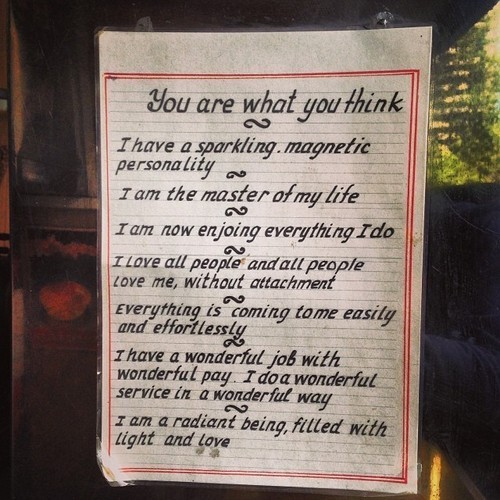 You are what you think
I have a sparkling. magnetic
personality
I am the master of my life
I am now enjoing everything I do
I love all people and all people
love me, without attachment
Everything is coming to me easily
and effortlessly
I have a wonderful job with
wonderful pay. I do a wonderful
service in a wonderful way
I am a radiant being, filled with
light and love